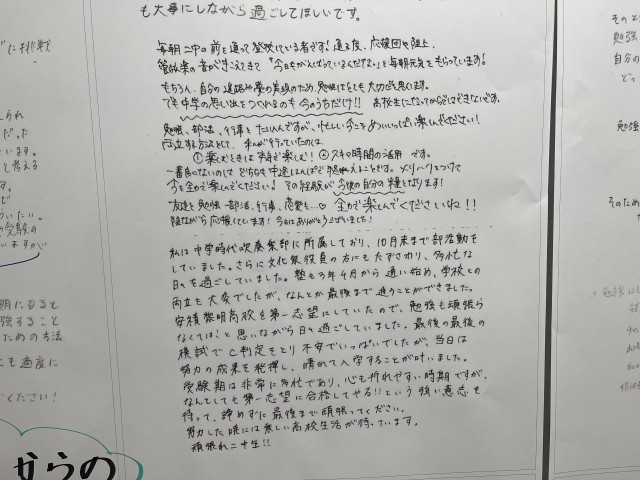 も大事にしながら過ごしてほしいです。
毎朝二中の前を通って登校している者です！通る度、応援団や陸上、
管弦楽の音がきこえてきて「今日もがんばっているんだなぁ」と毎朝元気をもらっています！
もちろん、自分の進路や夢の実現のため、勉強はとても大切だと思います。
でも中学の思い出をつくれるのも今のうちだけ!! 高校生になってからではできないです。
勉強、部活、行事とたいへんですが、忙しい今こそめいいっぱい楽しんでください！
両立する方法として、私が行っていたのは、
①楽しむときは本気で楽しむ！②スキマ時間の活用 です。
一番良くないのは どちらも中途はんぱで終わることです。メリハリをつけて
今を全力で楽しんでください！その経験が今後の自分の糧となります！
友達と勉強・部活、行事、恋愛も…♡ 全力で楽しんでくださいね！！
陰ながら応援しています！今日はありがとうございました！
私は中学時代吹奏楽部に所属しており、10月末まで部活動を
していました。さらに文化祭役員の方にもたずさわり、多忙な
日々を過ごしていました。塾も3年4月から通い始め、学校との
両立も大変でしたが、なんとか最後まで通うことができました。
安積黎明高校を第一志望にしていたので、勉強も頑張ら
なくては！と思いながら日々過ごしていました。最後の最後の
模試でC判定をとり不安でいっぱいでしたが、当日は
努力の成果を発揮し、晴れて入学することが叶いました。
受験期は非常に多忙であり、心も折れやすい時期ですが、
なんとしても第一志望に合格してやる!!という強い意志を
持って、諦めずに最後まで頑張ってください。
努力した暁には楽しい高校生活が待っています。
頑張れ二中生!!
からの